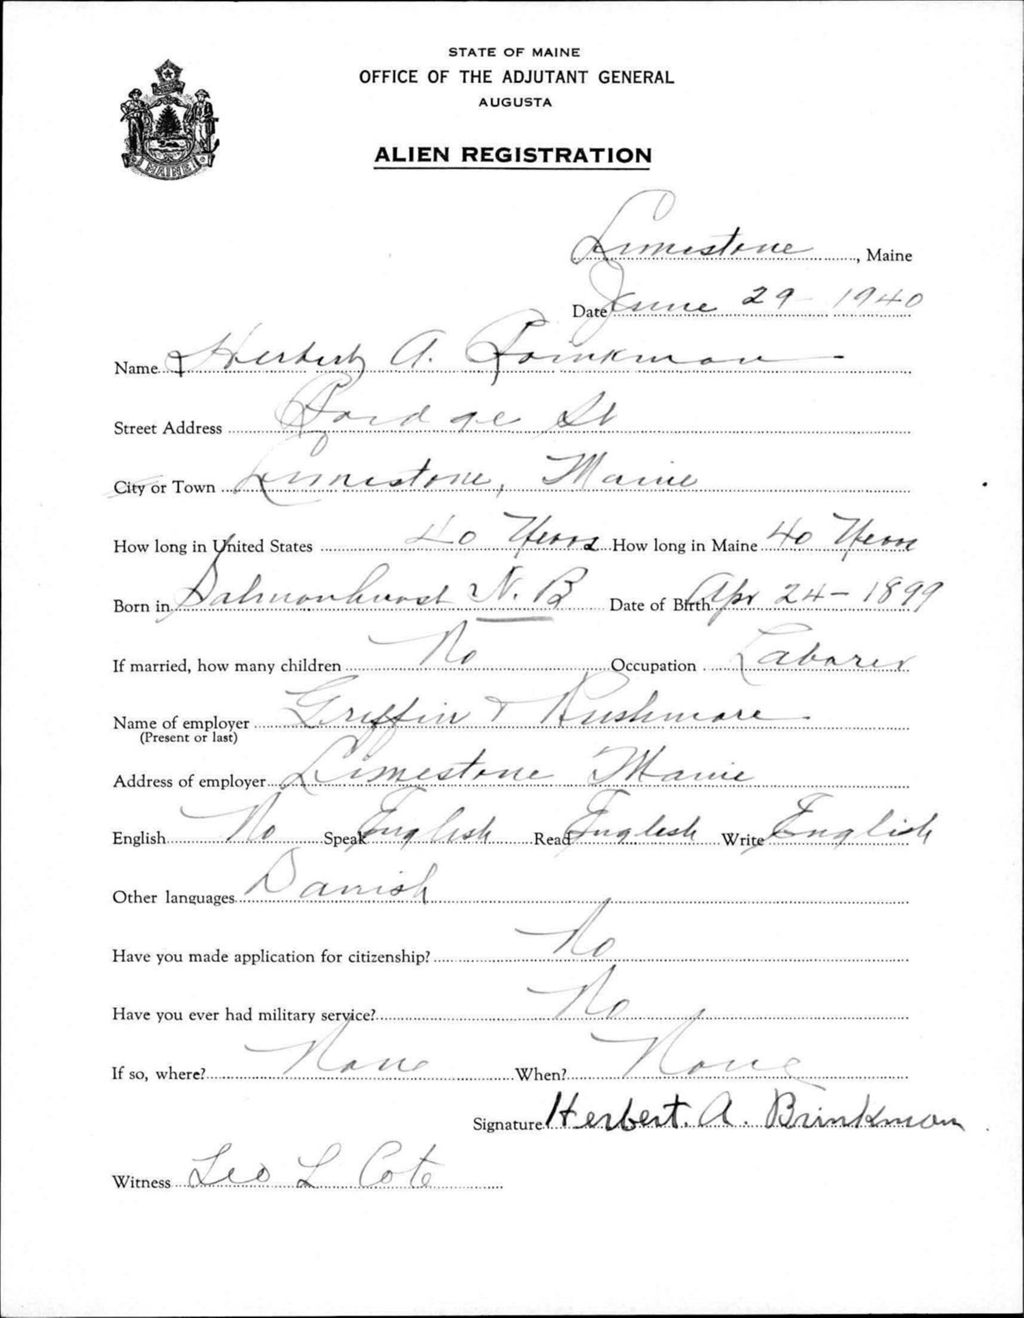 STATE OF MAINE
OFFICE OF THE ADJUTANT GENERAL
AUGUSTA
MAINE
ALIEN REGISTRATION
Limestone, Maine
Date June 29 1940
Name Herbert A. Brinkman
Street Address Bridge St
City or Town Limestone, Maine
How long in United States 40 Years How long in Maine 40 Years
Born in Salmonhurst N.B Date of Birth Apr 24-1899
If married, how many children No Occupation Laborer
Name of employer Griffin & Rushmore
(Present or last)
Address of employer Limestone Maine
English No Speak English Read English Write English
Other languages Danish
Have you made application for citizenship? No
Have you ever had military service? No
If so, where? None When? None
Signature Herbert. A. Brinkman
Witness Leo L Cote